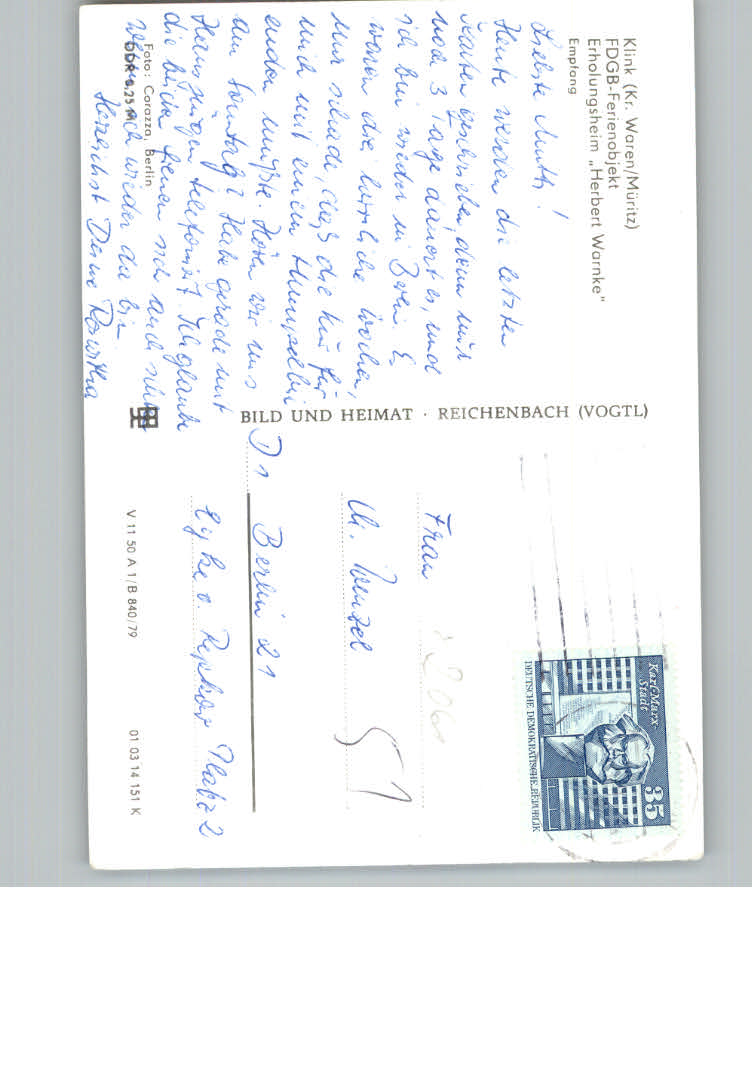 Klink (Kr. Waren/Müritz)
FDGB-Ferienobjekt
Erholungsheim „Herbert Warnke"
Empfang
Liebste Mutti!
Heute werden die letzten
Karten geschrieben, denn nur
noch 3 Tage dauert es, und
ich bin wieder in Berlin. Es
waren die herrliche Wochen,
nur schade, daß die Kur für
mich mit einem
enden mußte. Hören wir uns
am Sonntag? Habe gerade mit
Hans Jürgen telefoniert. Ich glaube
die beiden freuen sich auch schon
wenn ich wieder da bin.
Herzlichst Deine Roswitha
Foto: Carazza, Berlin
DDR 0,25 M
BILD UND HEIMAT · REICHENBACH (VOGTL)
Frau
U. Wenzel
D 1 Berlin 21
Eyke v. Repkow Platz 2
51
V 11 50 A 1/B 840/79
01 03 14 151 K
Karl-Marx-
Stadt
35
DEUTSCHE DEMOKRATISCHE REPUBLIK